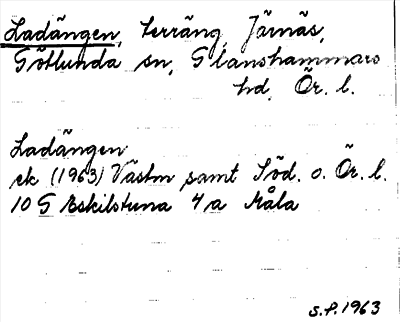 Ladängen, terräng, Järnäs,
Götlunda sn, Glanshammars
hd, Ör. l.
Ladängen
ek (1963) Västm samt Söd. o. Ör. l.
10 G Eskilstuna 4 a Måla
S.P. 1963